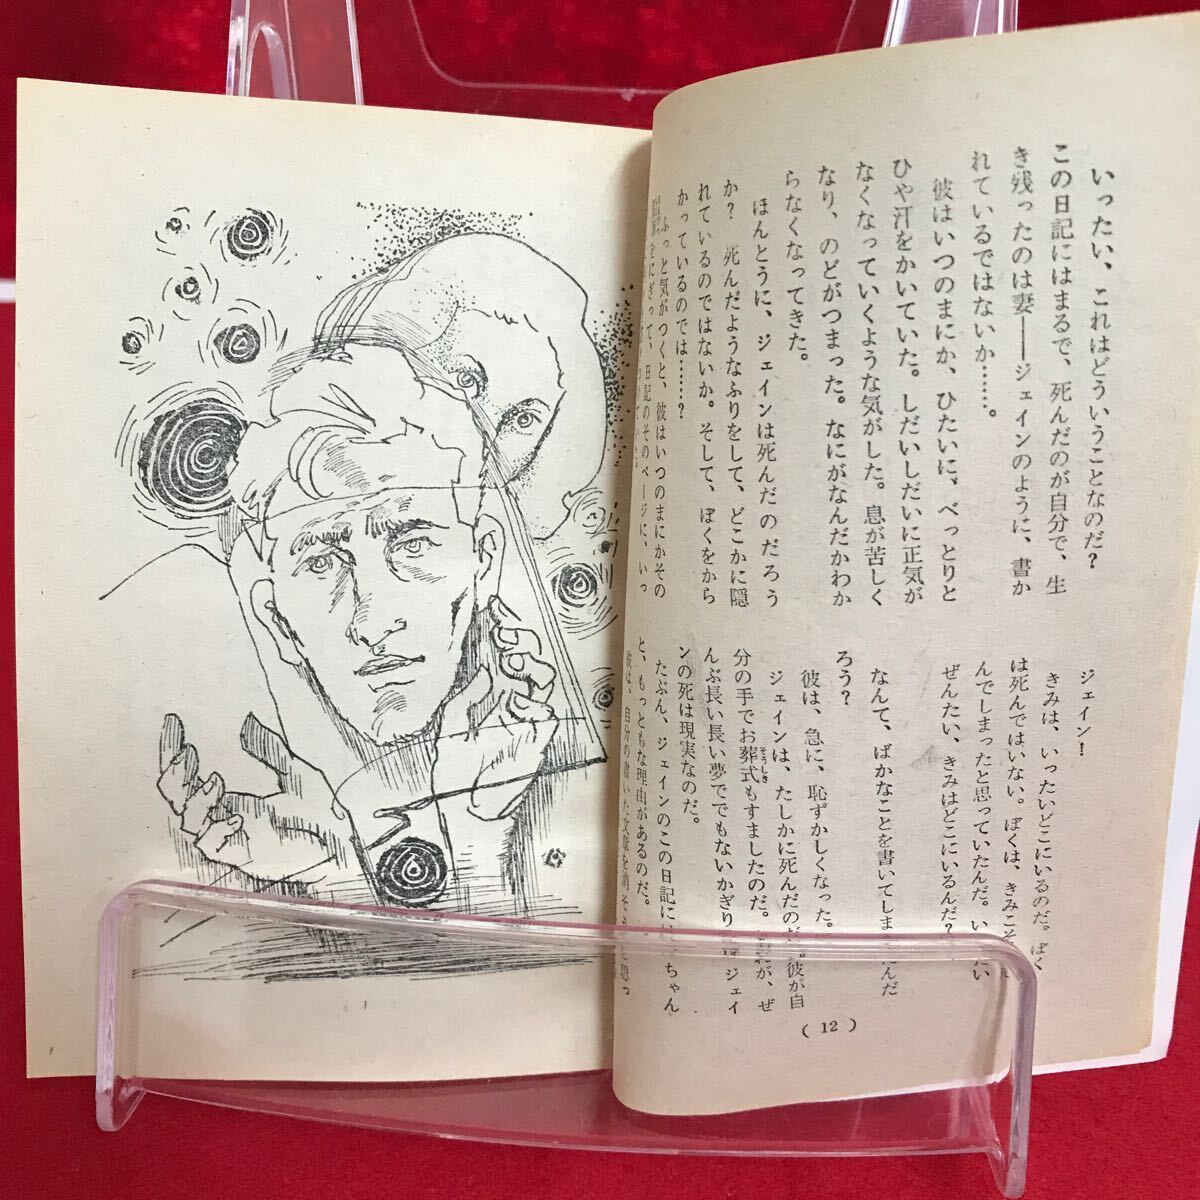 いったい、これはどういうことなのだ?
この日記にはまるで、死んだのが自分で、生
き残ったのは妻――ジェインのように、書か
れているではないか……。
彼はいつのまにか、ひたいに、べっとりと
ひや汗をかいていた。しだいしだいに正気が
なくなっていくような気がした。息が苦しく
なり、のどがつまった。なにがなんだかわか
らなくなってきた。
ほんとうに、ジェインは死んだのだろう
か? 死んだようなふりをして、どこかに隠
れているのではないか。そして、ぼくをから
かっているのでは……?
ふっと気がつくと、彼はいつのまにかその
をにぎって、日記のそのページに、いっ
ジェイン!
きみは、いったいどこにいるのだ。ぼく
は死んではいない。ぼくは、きみこそ
んでしまったと思っていたんだ。い たい
ぜんたい、きみはどこにいるんだ?
なんて、ばかなことを書いてしま んだ
ろう?
彼は、急に、恥ずかしくなった。
ジェインは、たしかに死んだのだ 彼が自
分の手でお葬式もすましたのだ。 れが、ぜ
そうしき
んぶ長い長い夢ででもないかぎり ジェイ
ンの死は現実なのだ。
たぶん、ジェインのこの日記に ちゃん
と、もっともな理由があるのだ。
彼は、自分の書いた文章を消そ と思っ
( 12 )